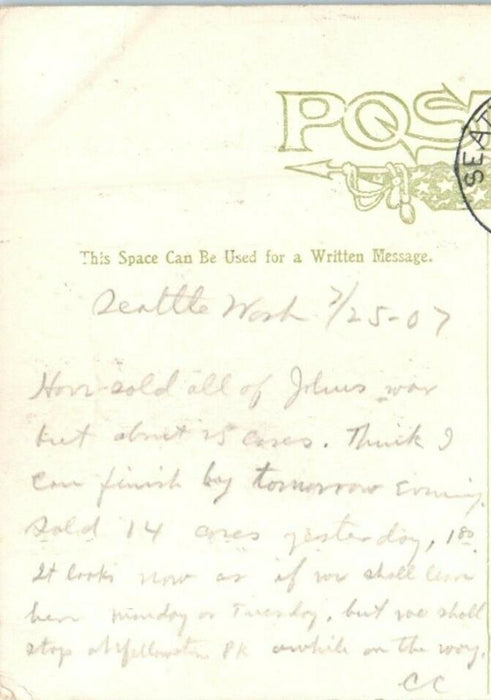 POST
SEAT
This Space Can Be Used for a Written Message.
Seattle Wash 7/25-07
Have sold all of Johns war
but about 15 cases. Think I
can finish by tomorrow evening.
Sold 14 cases yesterday,
It looks now as if we shall leave
here Monday or Tuesday, but we shall
stop at Yellowstn Pk awhile on the way.
CC